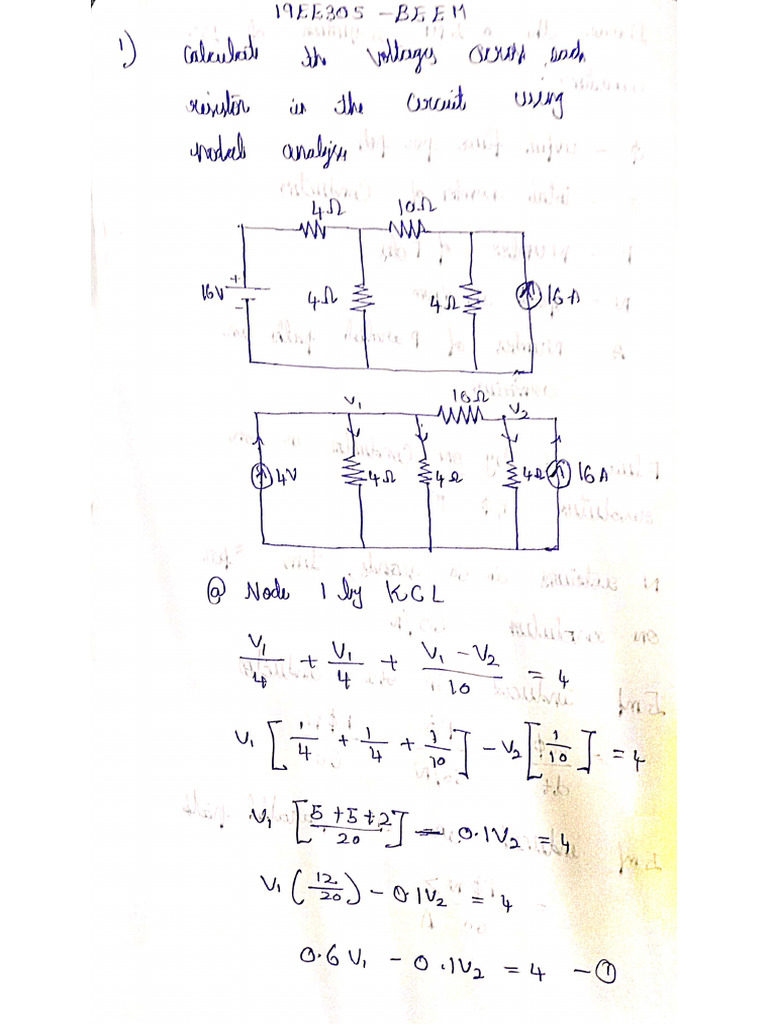 19EE305 - BEEM
1) Calculate the voltages across each
resistor in the circuit using
nodal analysis
4Ω 10Ω
16V + - 4Ω 4Ω 16A
V₁ 10Ω V₂
4V 4Ω 4Ω 4Ω 16A
@ Node 1 by KCL
V₁/4 + V₁/4 + (V₁ - V₂)/10 = 4
V₁ [1/4 + 1/4 + 1/10] - V₂ [1/10] = 4
V₁ [(5+5+2)/20] - 0.1V₂ = 4
V₁ (12/20) - 0.1V₂ = 4
0.6V₁ - 0.1V₂ = 4 - ①